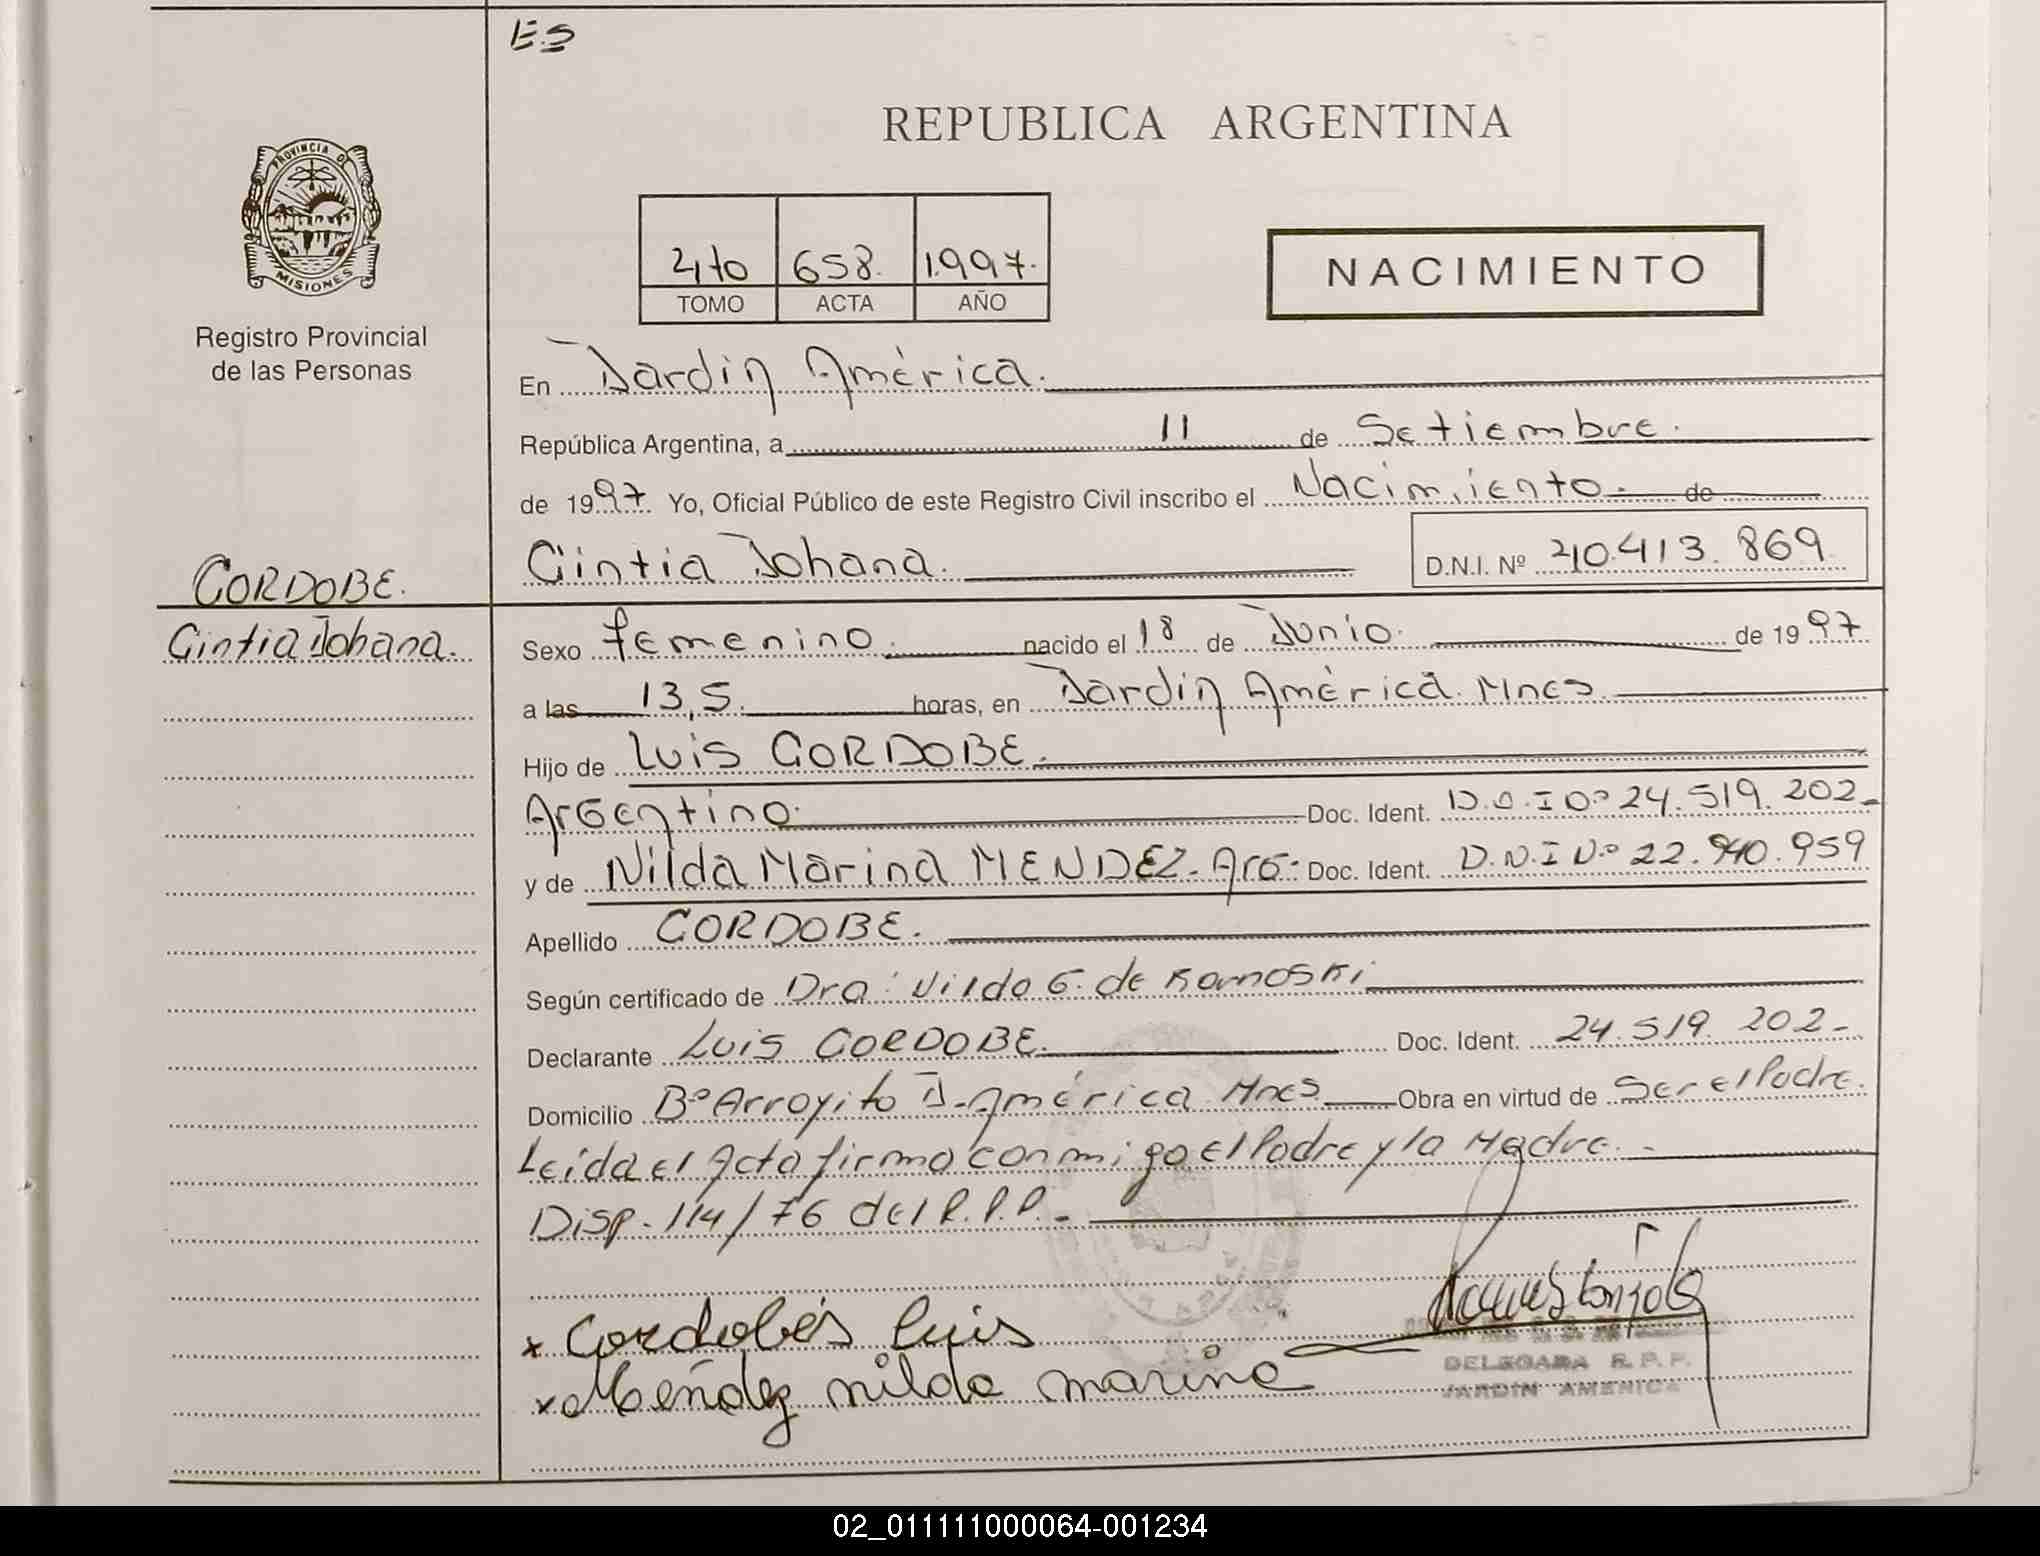 ES
REPUBLICA ARGENTINA
PROVINCIA DE
MISIONES
4to 658. 1.997.
TOMO ACTA AÑO
NACIMIENTO
Registro Provincial
de las Personas
En Jardín América.
República Argentina, a 11 de Setiembre.
de 1997. Yo, Oficial Público de este Registro Civil inscribo el Nacimiento. de
Cintia Johana. D.N.I. Nº 40.413.869.
CORDOBE.
Cintia Johana.
Sexo femenino. nacido el 18 de Junio. de 1997
a las 13,5. horas, en Jardín América. Mnes.
Hijo de Luis CORDOBE.
Argentino. Doc. Ident. D.N.I Nº 24.519.202-
y de Nilda Marina MENDEZ-Arg- Doc. Ident. D.N.I Nº 22.940.959
Apellido CORDOBE.
Según certificado de Dra: Nilda G. de
Declarante Luis CORDOBE. Doc. Ident. 24.519.202-
Domicilio Bº Arroyito J-América Mnes Obra en virtud de Ser el Padre.
Leída el Acta firma conmigo el Padre y la Madre.-
Disp. 114/76 del R.P.P.-
x Cordobés Luis
x Meñdez nilda marina
DELEGADA R.P.P.
JARDIN AMERICA
02_011111000064-001234